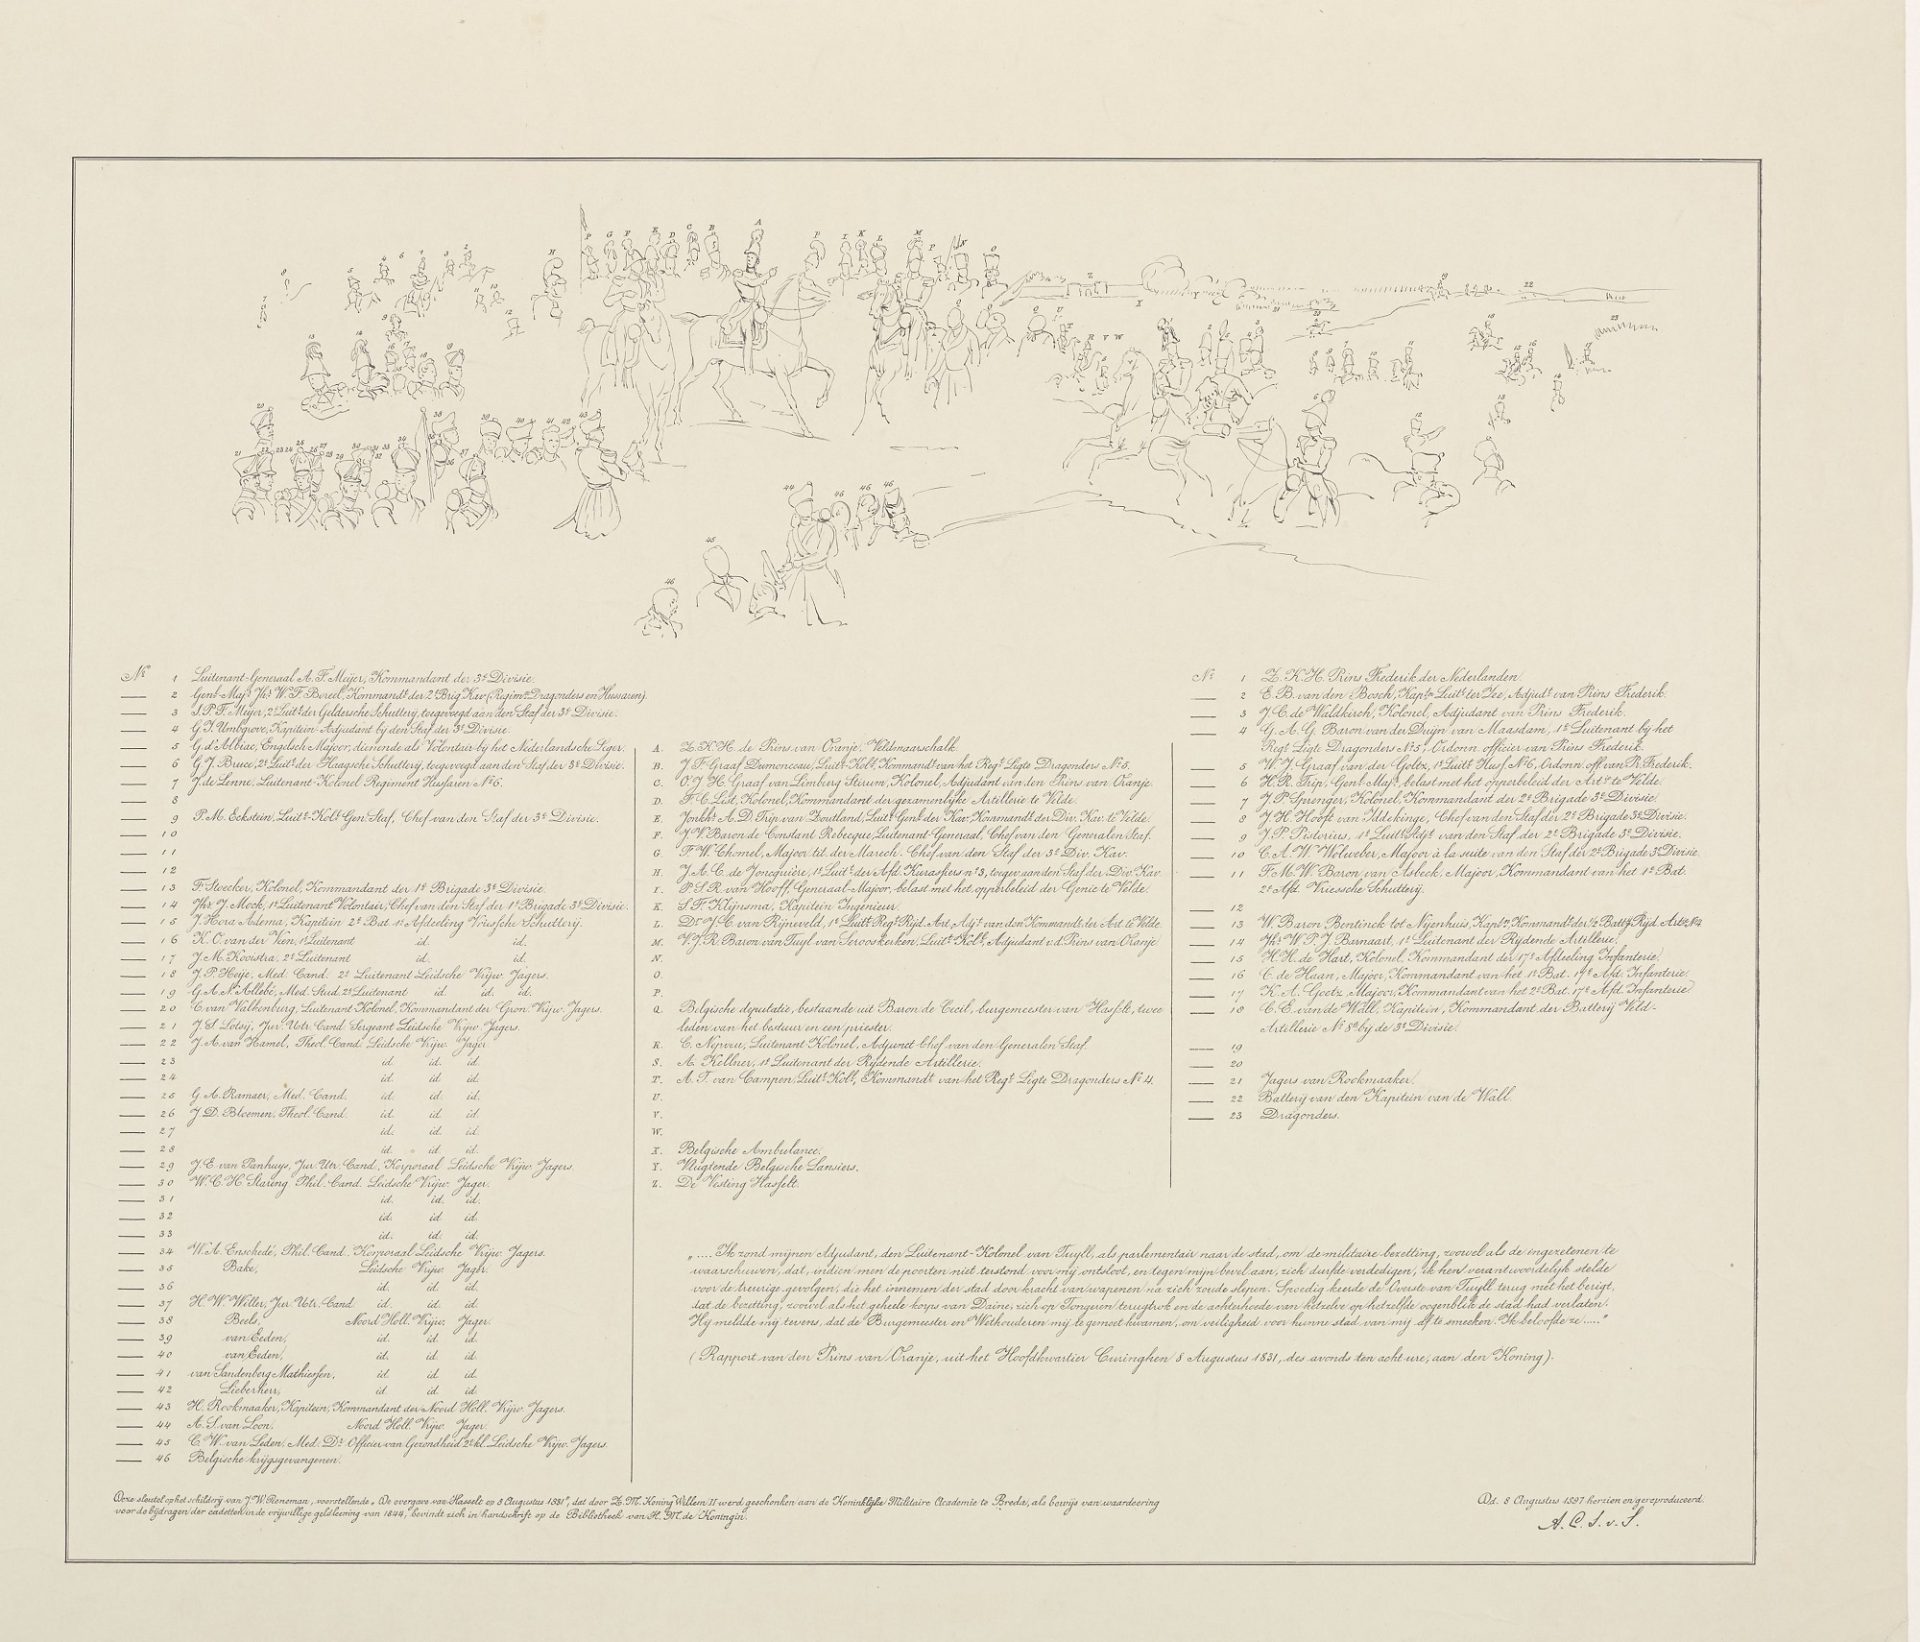 No 1 Luitenant-Generaal A. F. Meijer, Kommandant der 3e Divisie.
2 Genl-Majr Jhr W. F. Boreel, Kommandt der 2e Brig Kav. (Regimn Dragonders en Husaren).
3 S. P. F. Meijer, 2e Luitt der Geldersche Schutterij, toegevoegd aan den Staf der 3e Divisie.
4 G. J. Umbgrove, Kapitein-Adjudant bij den Staf der 3e Divisie.
5 G. d'Albiac, Engelsch Majoor, dienende als Volontair bij het Nederlandsche Leger.
6 G. J. Bruce, 2e Luitt der Haagsche Schutterij, toegevoegd aan den Staf der 3e Divisie.
7 J. de Lenne, Luitenant-Kolonel Regiment Husaren No 6.
8
9 P. M. Eckstein, Luitt-Koll Gen Staf, Chef van den Staf der 3e Divisie.
10
11
12
13 F. Stoecker, Kolonel, Kommandant der 1e Brigade 3e Divisie.
14 Jhr J. Mock, 1e Luitenant Volontair, Chef van den Staf der 1e Brigade 3e Divisie.
15 J. Hora Adema, Kapitein 2e Bat. 1e Afdeeling Vriesche Schutterij.
16 K. O. van der Veen, 1e Luitenant id. id.
17 J. M. Kooistra, 2e Luitenant id. id.
18 J. P. Heije, Med. Cand. 2e Luitenant Leidsche Vrijw. Jagers.
19 G. A. N. Allebé, Med. Stud. 2e Luitenant id. id. id.
20 C. van Valkenburg, Luitenant Kolonel, Kommandant der Gron. Vrijw. Jagers.
21 J. S. Lotsij, Jur. Utr. Cand. Sergeant Leidsche Vrijw. Jagers.
22 J. A. van Hamel, Theol. Cand. Leidsche Vrijw. Jager
23 id. id. id.
24 id. id. id.
25 G. A. Ramaer, Med. Cand. id. id. id.
26 J. D. Bloemen, Theol. Cand. id. id. id.
27 id. id. id.
28 id. id. id.
29 J. E. van Panhuys, Jur. Utr. Cand., Korporaal Leidsche Vrijw. Jagers.
30 W. C. H. Staring Phil. Cand. Leidsche Vrijw. Jager.
31 id. id. id.
32 id. id. id.
33 id. id. id.
34 W. A. Enschedé, Phil. Cand. Korporaal Leidsche Vrijw. Jagers.
35 Bake, Leidsche Vrijw. Jager.
36 id. id. id.
37 H. W. Willer, Jur. Utr. Cand id. id. id.
38 Beels, Noord Holl. Vrijw. Jager.
39 van Eeden, id. id. id.
40 van Eeden, id. id. id.
41 van Sandenberg Mathiessen, id. id. id.
42 Lieberherr, id. id. id.
43 H. Rookmaaker, Kapitein, Kommandant der Noord Holl. Vrijw. Jagers.
44 A. S. van Loon. Noord Holl. Vrijw. Jager.
45 C. W. van Leden, Med. Dr. Officier van Gezondheid 2e kl. Leidsche Vrijw. Jagers.
46 Belgische krijgsgevangenen.
A. Z. K. H. de Prins van Oranje, Veldmaarschalk.
B. J. F. Graaf Dumonceau, Luitt-Koll, Kommandt van het Regt Ligte Dragonders No 5.
C. O. J. H. Graaf van Limburg Stirum, Kolonel, Adjudant van den Prins van Oranje.
D. F. C. List, Kolonel, Kommandant der gezamenlijke Artillerie te Velde.
E. Jonkhr A. D. Trip van Zoutland, Luitt Genl der Kav. Kommandt der Div. Kav. te Velde.
F. J. V. Baron de Constant Rebecque, Luitenant-Generaal, Chef van den Generalen Staf.
G. F. W. Chomel, Majoor tit. der Marech. Chef van den Staf der 3e Div. Kav.
H. J. A. C. de Joncquière, 1e Luitt der Afd. Kurassiers no 3, toegev. aan den Staf der Div. Kav.
I. P. S. R. van Hooff, Generaal-Majoor, belast met het opperbeleid der Genie te Velde.
K. S. F. Klijnsma, Kapitein Ingenieur.
L. Dr. J. C. van Rijneveld, 1e Luitt Regt Rijd. Art. Adjt van den Kommandt der Art. te Velde.
M. V. J. R. Baron van Tuyll van Serooskerken, Luitt Koll, Adjudant v. d. Prins van Oranje.
N.
O.
P.
Q. Belgische deputatie, bestaande uit Baron de Cecil, burgemeester van Hasselt, twee
leden van het bestuur en een priester.
R. C. Nepveu, Luitenant Kolonel, Adjunct Chef van den Generalen Staf.
S. A. Kellner, 1e Luitenant der Rijdende Artillerie.
T. A. T. van Campen, Luitt Koll, Kommandt van het Regt Ligte Dragonders No 4.
U.
V.
W.
X. Belgische Ambulance.
Y. Vlugtende Belgische Lansiers.
Z. De Vesting Hasselt.
No 1 Z. K. H. Prins Frederik der Nederlanden.
2 E. B. van den Bosch, Kaptn Luitt ter Zee, Adjudt van Prins Frederik.
3 J. C. de Waldkirch, Kolonel, Adjudant van Prins Frederik.
4 G. A. G. Baron van der Duijn van Maasdam, 1e Luitenant bij het
Regt Ligte Dragonders No 5, Ordonn. officier van Prins Frederik.
5 W. J. Graaf van der Goltz, 1e Luitt Husn No 6, Ordonn. off. van Pr. Frederik.
6 H. R. Trip, Genl-Majr belast met het opperbeleid der Artie te Velde.
7 J. P. Sprenger, Kolonel, Kommandant der 2e Brigade 3e Divisie.
8 J. H. Hooft van Iddekinge, Chef van den Staf der 2e Brigade 3e Divisie.
9 J. P. Pistorius, 1e Luitt Adjt van den Staf der 2e Brigade 3e Divisie.
10 C. A. W. Wolweber, Majoor à la suite van den Staf der 2e Brigade 3e Divisie.
11 F. M. W. Baron van Asbeck, Majoor, Kommandant van het 1e Bat.
2e Afd. Vriessche Schutterij.
12
13 W. Baron Bentinck tot Nijenhuis, Kaptn, Kommandt der 1/2 Battij Rijd. Artie No 4
14 Jhr W. P. J. Barnaart, 1e Luitenant der Rijdende Artillerie.
15 H. H. de Hart, Kolonel, Kommandant der 17e Afdeeling Infanterie.
16 C. de Haan, Majoor, Kommandant van het 1e Bat. 17e Afd. Infanterie.
17 K. A. Goetz, Majoor, Kommandant van het 2e Bat. 17e Afd. Infanterie
18 C. E. van de Wall, Kapitein, Kommandant der Batterij Veld-
Artillerie No 8 bij de 3e Divisie.
19
20
21 Jagers van Rookmaaker.
22 Batterij van den Kapitein van de Wall.
23 Dragonders.
„.... Ik zond mijnen Adjudant, den Luitenant-Kolonel van Tuyll, als parlementair naar de stad, om de militaire bezetting, zoowel als de ingezetenen te
waarschuwen, dat, indien men de poorten niet terstond voor mij ontsloot, en tegen mijn bevel aan, zich durfde verdedigen, ik hen verantwoordelijk stelde
voor de treurige gevolgen, die het innemen der stad door kracht van wapenen na zich zoude slepen. Spoedig keerde de Overste van Tuyll terug met het berigt,
dat de bezetting, zoowel als het geheele korps van Daine, zich op Tongeren terugtrok en de achterhoede van hetzelve op hetzelfde oogenblik de stad had verlaten.
Hij meldde mij tevens, dat de Burgemeester en Wethouderen mij te gemoet kwamen, om veiligheid voor hunne stad van mij af te smeeken. Ik beloofde ze....."
(Rapport van den Prins van Oranje, uit het Hoofdkwartier Curinghen 8 Augustus 1831, des avonds ten acht ure, aan den Koning).
Deze sleutel op het schilderij van J. W. Pieneman, voorstellende „De overgave van Hasselt op 8 Augustus 1831", dat door Z. M. Koning Willem II werd geschonken aan de Koninklijke Militaire Academie te Breda, als bewijs van waardeering
voor de bijdragen der cadetten in de vrijwillige geldleening van 1844, bevindt zich in handschrift op de Bibliotheek van H. M. de Koningin.
Dd. 8 Augustus 1897 herzien en gereproduceerd.
A. C. S. v. S.